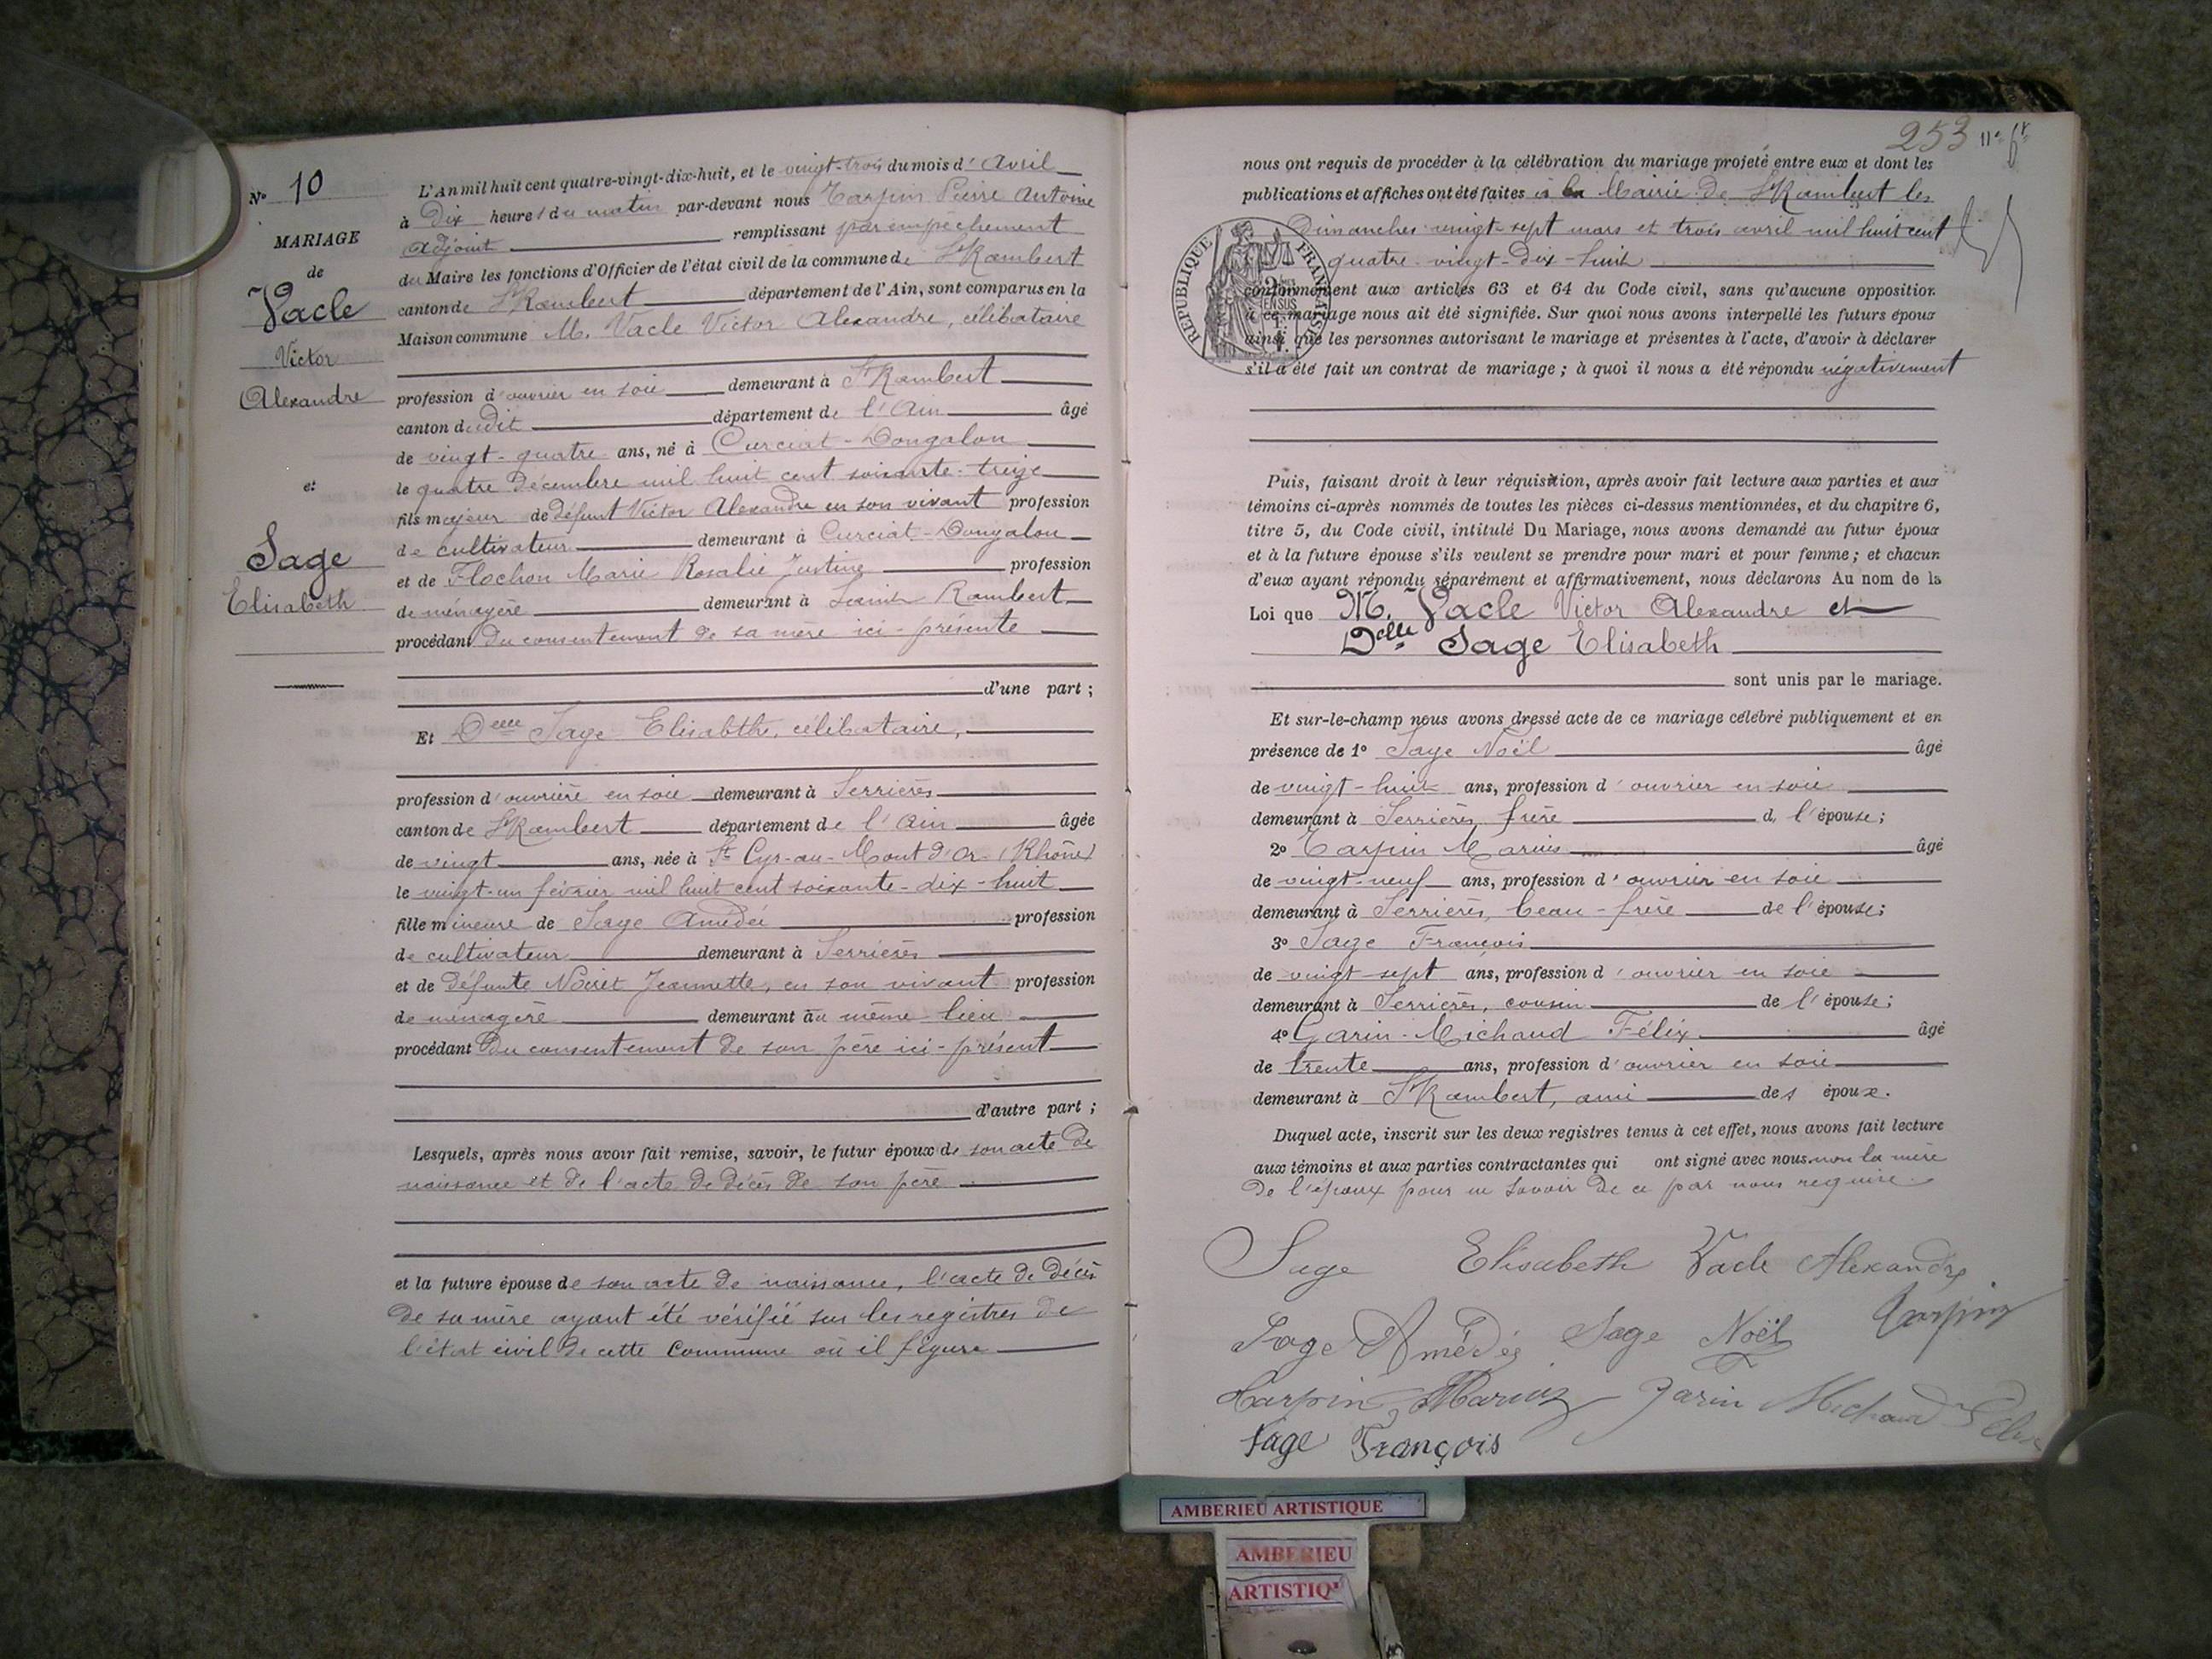 No 10
MARIAGE
de
Vacle
Victor
Alexandre
et
Sage
Elisabeth
L'An mil huit cent quatre-vingt-dix-huit, et le vingt-trois du mois d'Avril
à Dix heures du matin par-devant nous Tarpin Pierre Antoine
adjoint remplissant par empêchement
du Maire les fonctions d'Officier de l'état civil de la commune de St Rambert
canton de St Rambert département de l'Ain, sont comparus en la
Maison commune M. Vacle Victor Alexandre, célibataire
profession d'ouvrier en soie demeurant à St Rambert
canton dudit département de l'Ain âgé
de vingt-quatre ans, né à Curciat-Dongalon
le quatre Décembre mil huit cent soixante-treize
fils majeur de Défunt Victor Alexandre en son vivant profession
de cultivateur demeurant à Curciat-Dongalon
et de Flochon Marie Rosalie Justine profession
de ménagère demeurant à Saint Rambert
procédant Du consentement de sa mère ici-présente
d'une part ;
Et Delle Sage Elisabthe, célibataire,
profession d'ouvrière en soie demeurant à Serrières
canton de St Rambert département de l'Ain âgée
de vingt ans, née à St Cyr-au-Mont d'Or (Rhône)
le vingt-un février mil huit cent soixante-dix-huit
fille mineure de Sage Amédée profession
de cultivateur demeurant à Serrières
et de Défunte Noiret Jeannette, en son vivant profession
de ménagère demeurant au même lieu
procédant Du consentement de son père ici-présent
d'autre part ;
Lesquels, après nous avoir fait remise, savoir, le futur époux de son acte de
naissance et de l'acte de décès de son père
et la future épouse de son acte de naissance, l'acte de décès
de sa mère ayant été vérifié sur les registres de
l'état civil de cette Commune où il figure
253
nous ont requis de procéder à la célébration du mariage projeté entre eux et dont les
publications et affiches ont été faites à la Mairie de St Rambert les
Dimanches vingt-sept mars et trois avril mil huit cent
quatre-vingt-Dix-huit
REPUBLIQUE FRANÇAISE
conformément aux articles 63 et 64 du Code civil, sans qu'aucune opposition
à ce mariage nous ait été signifiée. Sur quoi nous avons interpellé les futurs époux
ainsi que les personnes autorisant le mariage et présentes à l'acte, d'avoir à déclarer
s'il a été fait un contrat de mariage ; à quoi il nous a été répondu négativement
Puis, faisant droit à leur réquisition, après avoir fait lecture aux parties et aux
témoins ci-après nommés de toutes les pièces ci-dessus mentionnées, et du chapitre 6,
titre 5, du Code civil, intitulé Du Mariage, nous avons demandé au futur époux
et à la future épouse s'ils veulent se prendre pour mari et pour femme ; et chacun
d'eux ayant répondu séparément et affirmativement, nous déclarons Au nom de la
Loi que M. Vacle Victor Alexandre et
Delle Sage Elisabeth
sont unis par le mariage.
Et sur-le-champ nous avons dressé acte de ce mariage célébré publiquement et en
présence de 1o Sage Noël âgé
de vingt-huit ans, profession d'ouvrier en soie
demeurant à Serrières, frère de l'épouse ;
2o Tarpin Marius âgé
de vingt-neuf ans, profession d'ouvrier en soie
demeurant à Serrières, beau-frère de l'épouse ;
3o Sage François
de vingt-sept ans, profession d'ouvrier en soie
demeurant à Serrières, cousin de l'épouse ;
4o Garin-Michaud Félix âgé
de trente ans, profession d'ouvrier en soie
demeurant à St Rambert, ami des époux.
Duquel acte, inscrit sur les deux registres tenus à cet effet, nous avons fait lecture
aux témoins et aux parties contractantes qui ont signé avec nous non la mère
De l'époux pour ne savoir De ce par nous requise
Sage Elisabeth Vacle Alexandre
Sage Amédée Sage Noël Tarpin
Tarpin Marius Garin Michaud Félix
Sage François
AMBERIEU ARTISTIQUE
AMBERIEU
ARTISTIQ